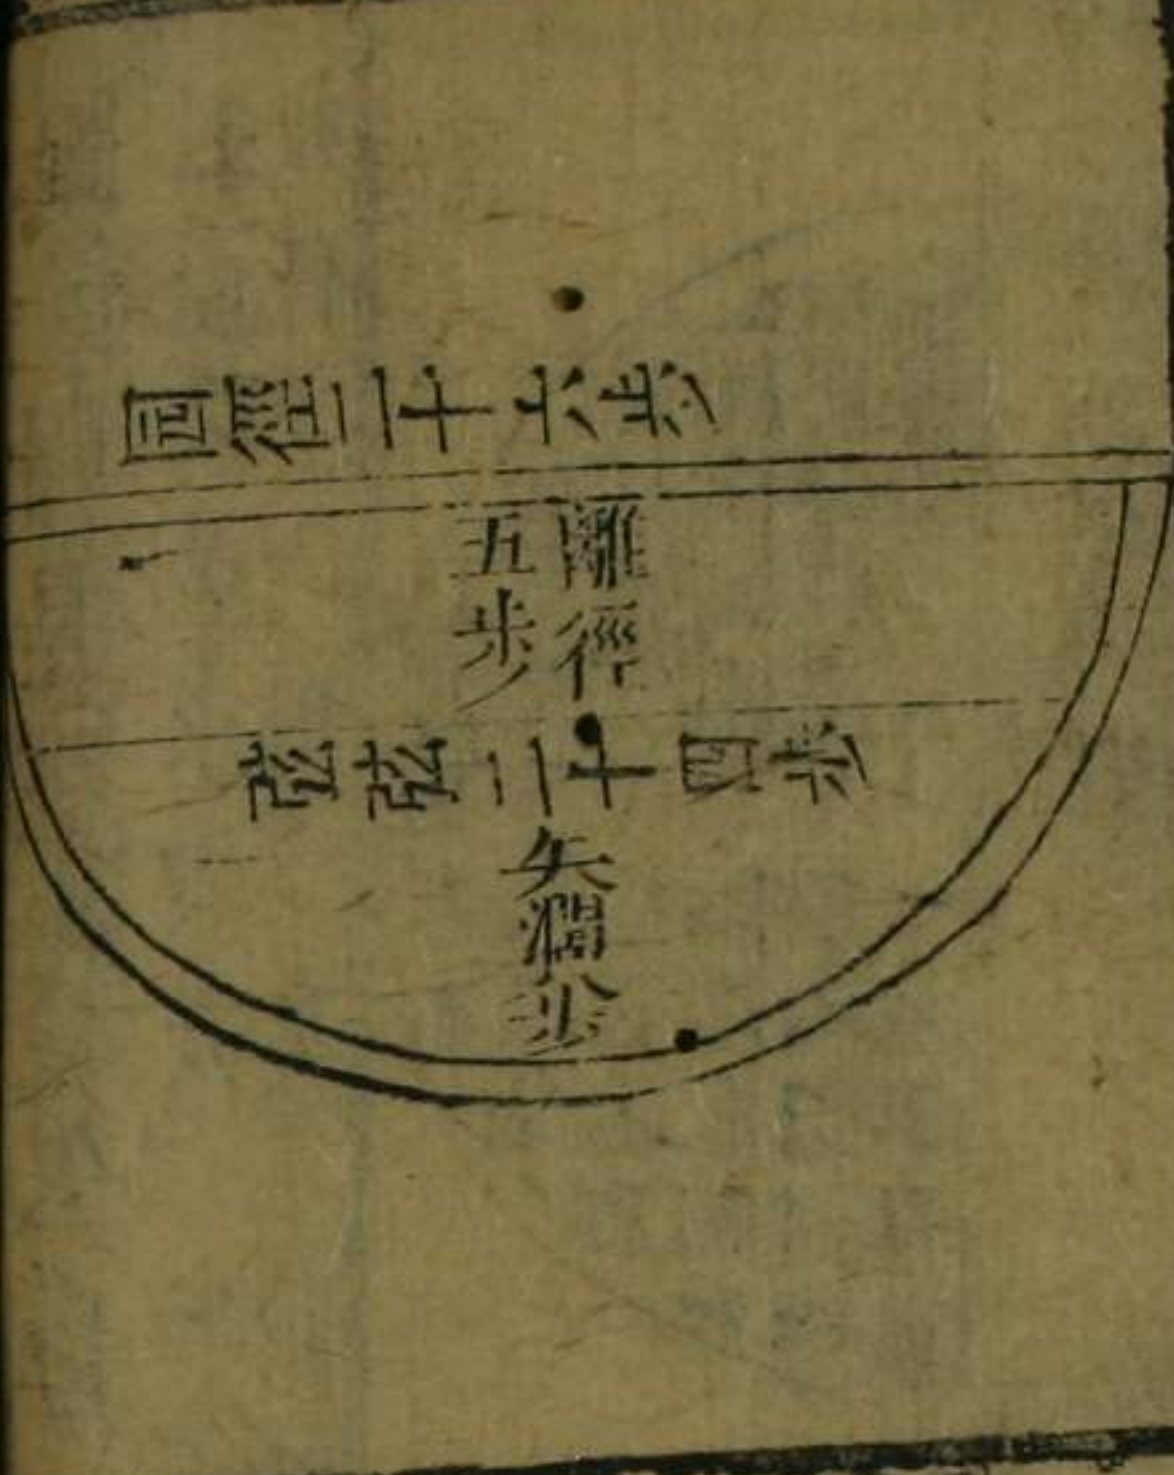 圓徑二十六步
離徑
五步
弧弦二十四步
矢濶步